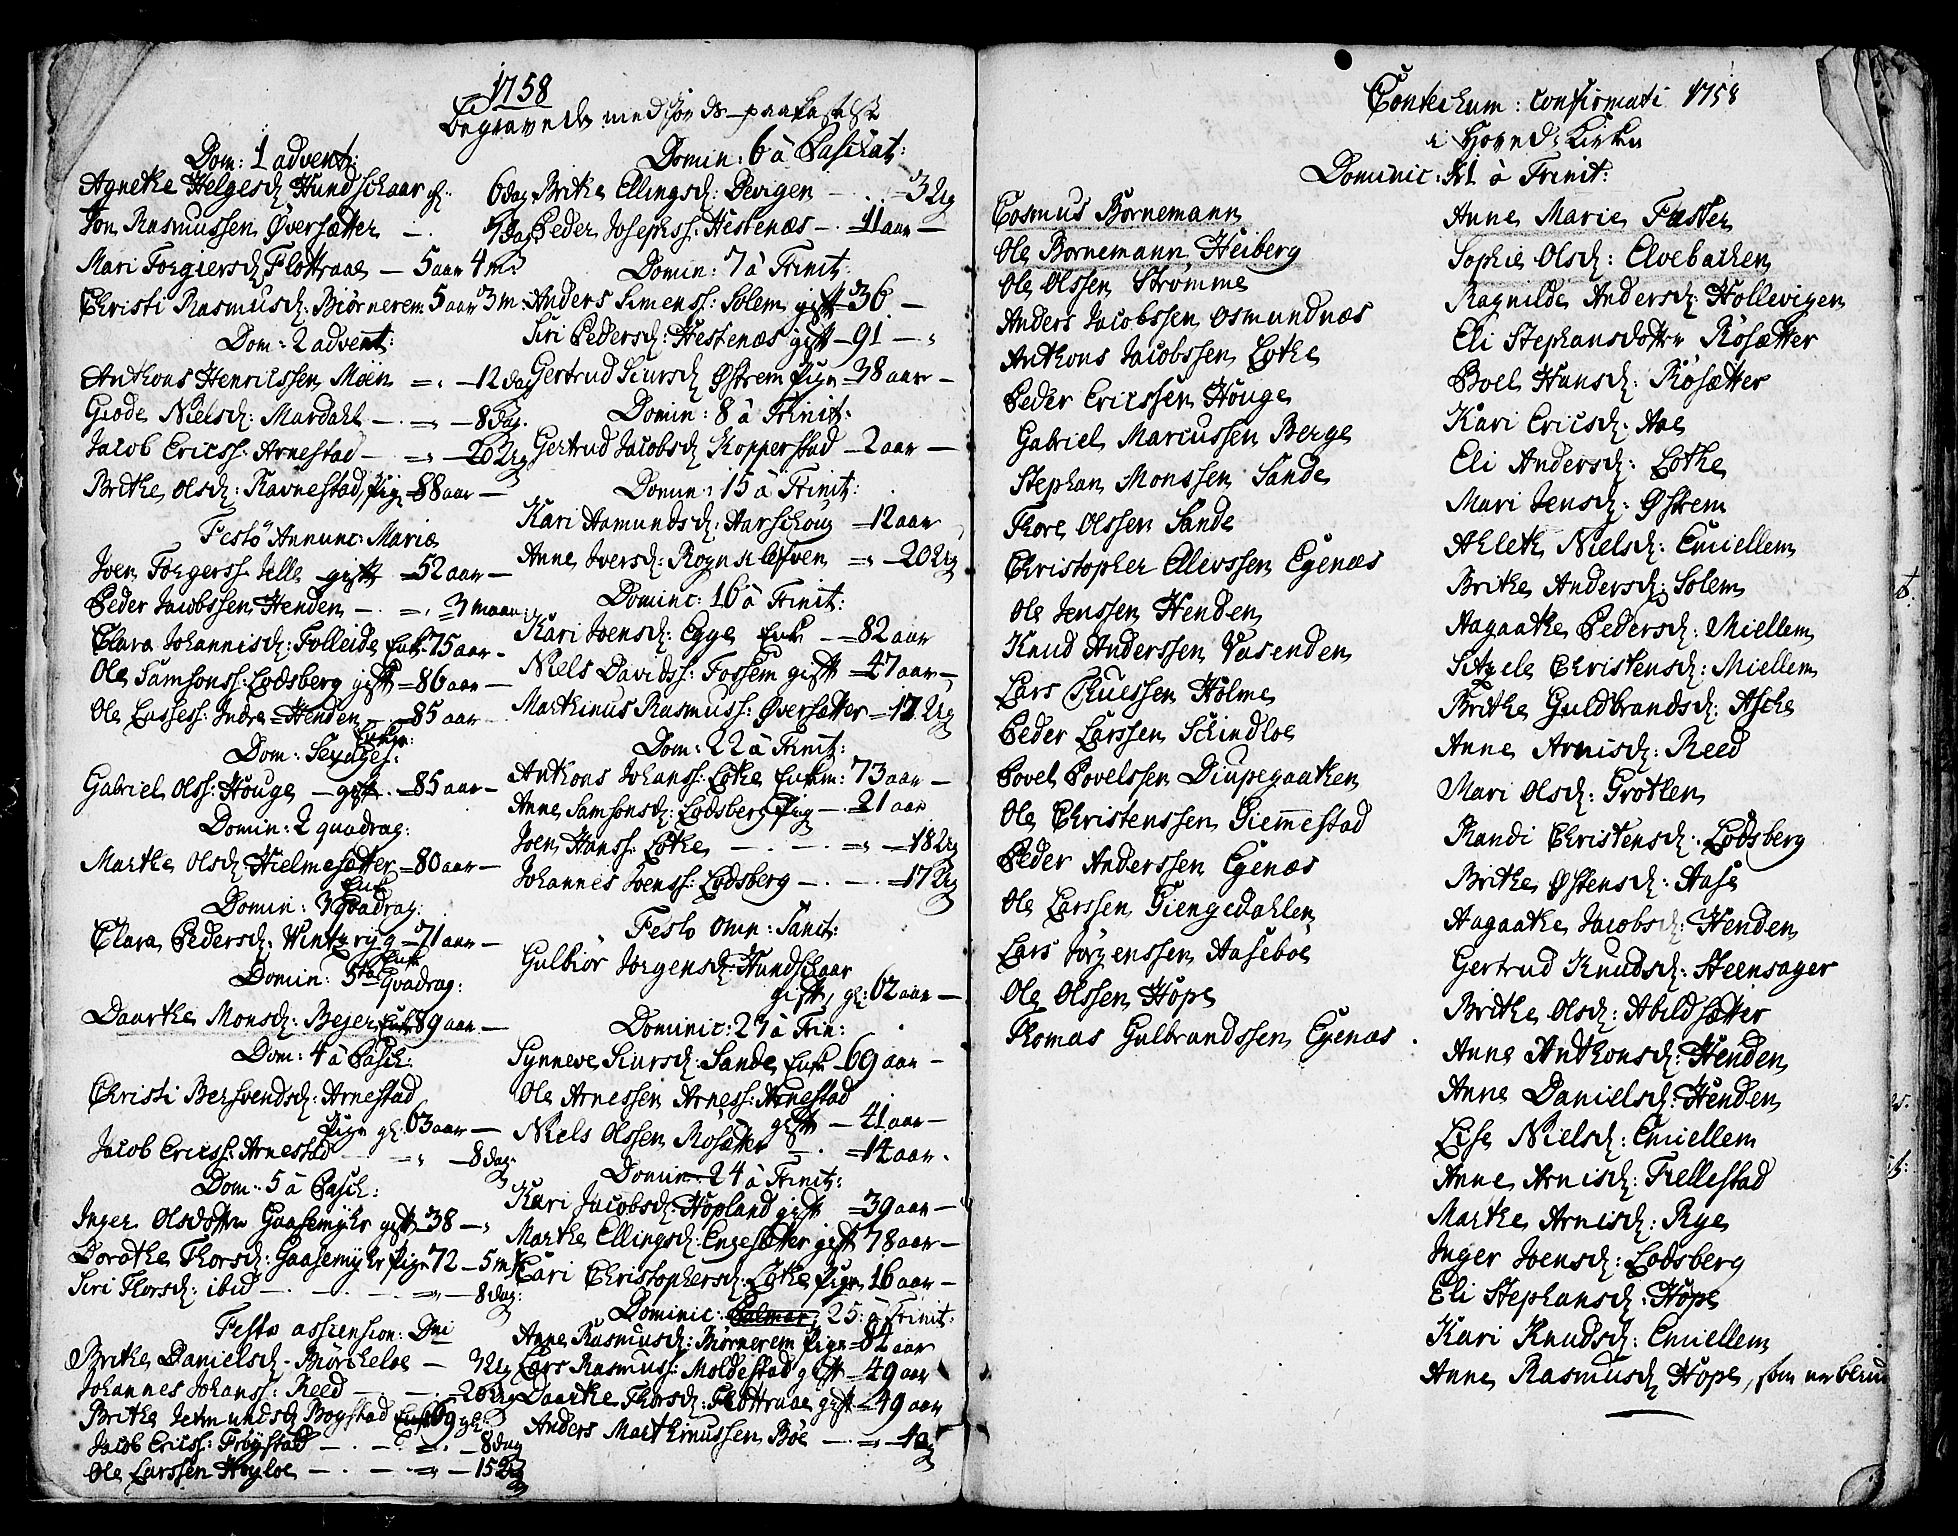 1758
Begravede med Jords-paakastelse
Dom: 1 advent:
Agnethe Helgesd: Hundschaar gl: 6 dag
Jon Rasmussen Øversætter — 7 dag
Mari Torgiersd: Flottraae — 5 aar 4 m:
Christi Rasmusd: Biørnerem 5 aar 3 m:
Dom: 2 advent:
Anthons Henricssen Moen — 12 dag
Giøde Nielsd: Mardahl — 8 dag.
Jacob Ericss: Arnestad — 20 Ug
Brithe Olsd: Ravnestad, Pige 88 aar —
Festo Annunc: Mariæ
Joen Torgerss: Jelle gift 52 aar —
Peder Jacobssen Henden — 3 maan:
Clara Johannisd: Folleide Enk: 75 aar —
Ole Samsonss: Lodsberg gift 86 aar —
Ole Lassess: Indre-Henden 85 aar
Enkm:
Dom: Sexages:
Gabriel Olss: Houge — gift — 85 aar —
Domin: 2 quadrag:
Marthe Olsd: Hielmesætter 80 aar —
Enk
Domin: 3 Qvadrag:
Clara Pedersd: Wintzryg 71 aar —
Enk
Domin: 5ta Qvadrag:
Daarthe Monsd: Bejer Enk 89 aar —
Dom: 4 à Pasch:
Christi Bersvendsd: Arnestad
Pige gl: 63 aar —
Jacob Ericss: Arnestad — 8 dag.
Dom: 5 à Pasch:
Inger Olsdotter Gaasemyhr gift 38 —
Dorothe Thorsd: Gaasemyhr Pige 72 — 5 m
Siri Thorsd: ibid — 8 dag:
Festo assension: Dni
Brithe Danielsd: Biørcheloe — 3 Ug
Johannes Johanss: Reed — 26 Ug
Brithe Jermundsd Bogstad Enk 69 gl:
Jacob Ericss: Frøystad — 8 dag
Ole Larssen Høyloe — 15 Ug
Domin: 6 à Paschat:
Brithe Ellingsd: Devigen — 3 Ug
Peder Josephss: Hestenæs — 11 aar —
Domin: 7 à Trinit:
Anders Simenss: Solem gift 36 —
Siri Pedersd: Hestenæs gift 91 —
Gertrud Siursd Østrem Pige 38 aar —
Domin: 8 à Trinit:
Gertrud Jacobsd Kopperstad — 2 aar —
Domin: 15 à Trinit:
Kari Aamundsd: Aarschoug — 12 aar
Anne Iversd: Rognklefven — 20 Ug
Dominc: 16 à Trinit:
Kari Joensd: Egge Enk — 82 aar
Niels Davidss: Fossem gift 47 aar —
Marthinus Rasmuss: Øversætter — 17 Ug
Dom: 22 à Trinit:
Anthons Johanss: Lothe Enkm: 73 aar —
Anne Samsonsd: Lodsberg Pig — 21 aar
Joen Hanss: Lothe — 18 Ug
Johannes Joenss: Lodsberg — 17 Ug
Festo Omn: Sanct:
Gulbiør Jørgensd: Hundschaar
gift, gl: 62 aar —
Dominic: 27 à Trin:
Synneve Siursd: Sande Enk 69 aar —
Ole Arnessen Arness: Arnestad
gift — 41 aar —
Niels Olssen Rosætter — 14 aar.
Domin: 24 à Trinit:
Kari Jacobsd: Hopland gift 39 aar —
Marthe Ellingsd: Engesætter gift 78 aar —
Kari Christophersd: Lothe Pige 16 aar —
Dominic: Palmar: 25: à Trinit:
Anne Rasmusd: Biørnerem Pige 84 aar
Lars Rasmuss: Moldestad gift 49 aar
Daarthe Thorsd: Flottraae gift 49 aar
Anders Marthinussen Böe — 4 Ug
Confirmati 1758
i Hoved: Kirken
Dominic: 21 à Trinit:
Cosmus Bornemann
Ole Bornemann Heiberg
Ole Olssen Strømme
Anders Jacobssen Osmundnæs
Anthons Jacobssen Lothe
Peder Ericssen Houge
Gabriel Marcussen Berge
Stephan Monssen Sande
Thore Olssen Sande
Christopher Ellevssen Egenæs
Ole Jenssen Henden
Knud Anderssen Vasenden
Lars Truessen Holme
Peder Larssen Schindloe
Povel Povelssen Diupegaathen
Ole Christenssen Giemmestad
Peder Anderssen Egenæs
Ole Larssen Giengedahlen
Lars Jørgenssen Aaseboe
Ole Olssen Hope
Thomas Gulbrandssen Egenæs.
Anne Marie Faster
Sophie Olsd: Elvebachen
Ragnilde Andersd: Hollevigen
Eli Stephansdotter Rosætter
Boel Hansd: Rosætter
Kari Ericsd: Aae
Eli Andersd: Lothe
Mari Jensd: Østrem
Ahlethe Nielsd: Emiellem
Brithe Andersd: Solem
Aagaathe Pedersd: Miellem
Sitzele Christensd: Miellem
Brithe Guldbrandsd: Asche
Anne Arnisd: Reed
Mari Olsd: Grothen
Randi Christensd: Lodsberg
Brithe Østensd: Aase
Aagaathe Jacobsd: Henden
Gertrud Knudsd: Steensager
Brithe Olsd: Abildsætter
Anne Anthonsd: Henden
Anne Danielsd: Henden
Lise Nielsd: Emiellem
Anne Arnisd: Fiellestad
Marthe Arnisd: Rye
Inger Joensd: Lodsberg
Eli Stephansd: Hope
Kari Knudsd: Emiellem
Anne Rasmusd Hope, som er blind